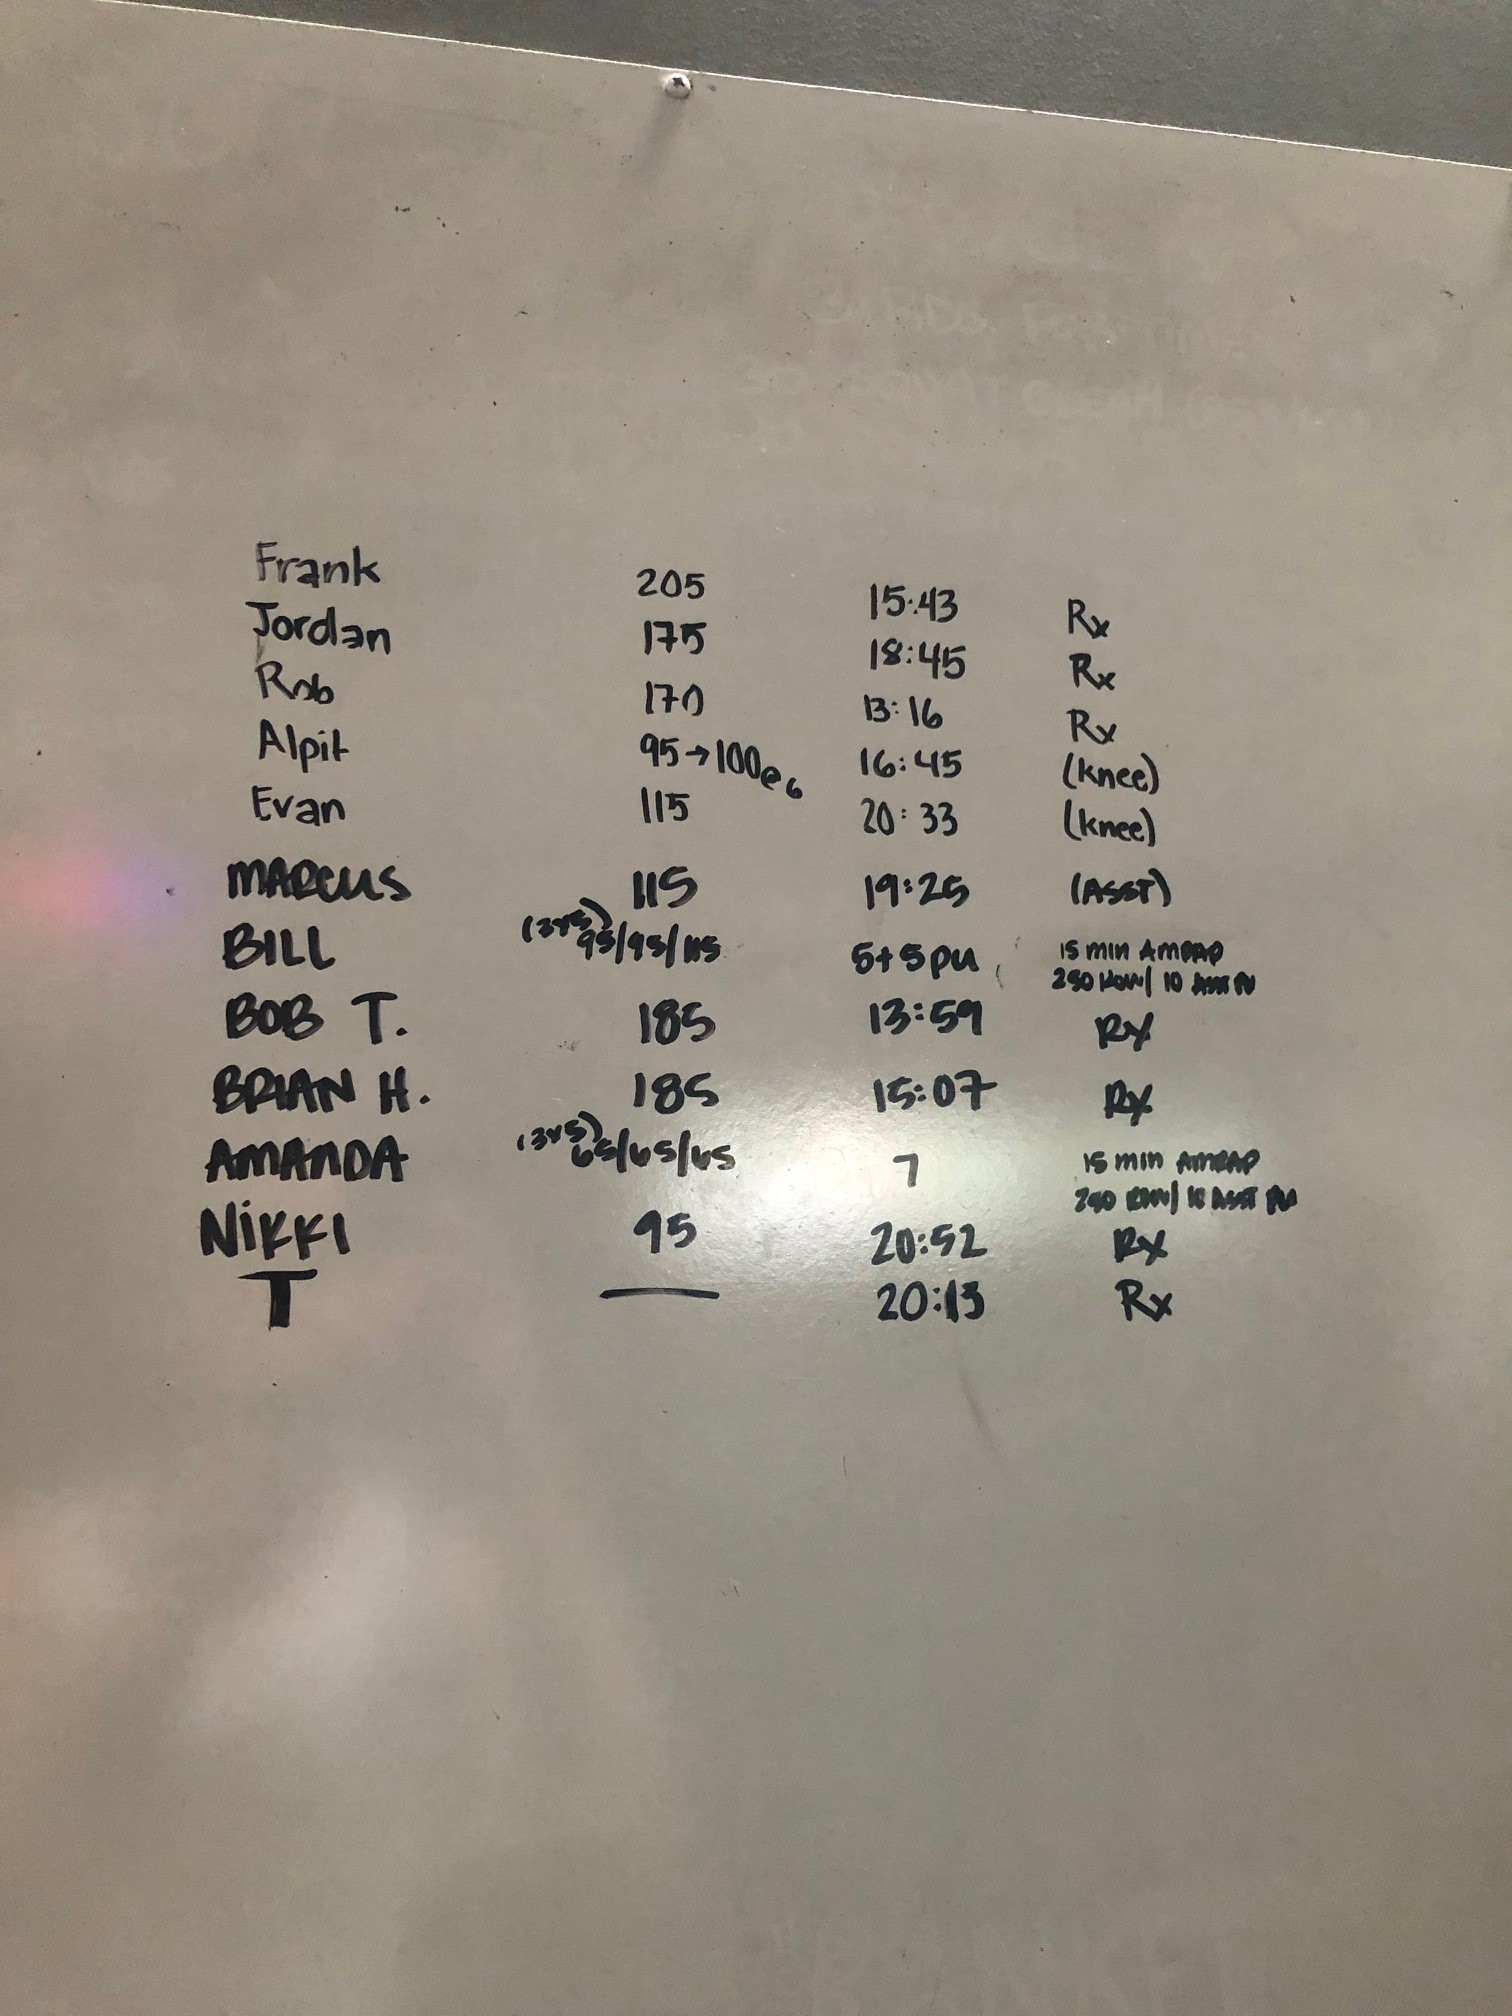 Frank 205 15:43 Rx
Jordan 175 18:45 Rx
Rob 170 13:16 Rx
Alpit 95→100@6 16:45 (knee)
Evan 115 20:33 (knee)
MARCUS 115 19:25 (ASST)
BILL (3x5) 95/95/115 5+5pu 15 min AMRAP
250 ROW/ 10 ASST PU
BOB T. 185 13:59 RX
BRIAN H. 185 15:07 RX
AMANDA (3x5) 65/65/65 7 15 min AMRAP
250 ROW/ 10 ASST PU
NIKKI 95 20:52 RX
T — 20:13 Rx